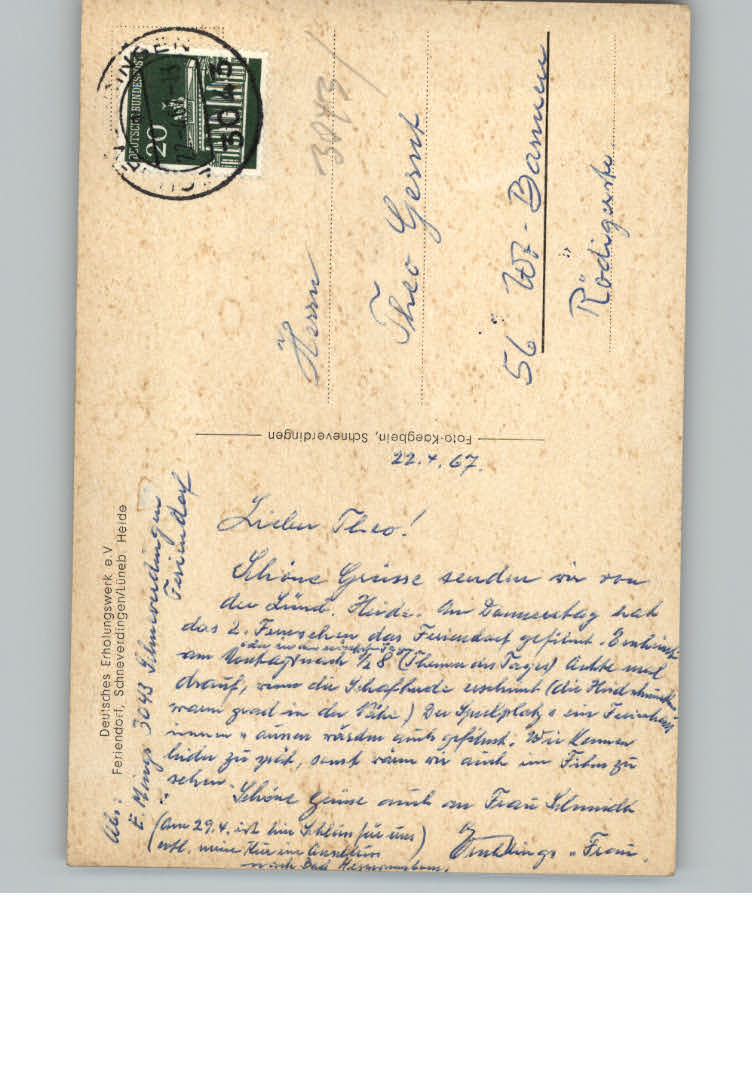 Deutsches Erholungswerk e.V.
Feriendorf, Schneverdingen/Lüneb Heide
Abs:
E. Mings 3043 Schneverdingen
Feriendorf
22.4.67.
Lieber Theo!
Schöne Grüsse senden wir von
der Lünb. Heide. Am Donnerstag hat
das 2. Fernsehen das Feriendorf gefilmt. Erscheint
am Montag nach ½ 8 (Themen des Tages) Achte mal
drauf, wenn die Schafherde erscheint (die Heidschnucken
waren grad in der Nähe) Der Spielplatz u ein Ferienhaus
innen u aussen würden auch gefilmt. Wir kamen
leider zu spät, sonst wären wir auch im Film zu
sehen.
Schöne Grüsse auch an Frau Schmidt
(Am 29.4. ist hier Schluss für uns)
evtl. meine Kur im Anschluss
nach Bad
Mings u. Frau.
Foto-Kaegbein, Schneverdingen
DEUTSCHE BUNDESPOST
20
3043
3043
Herrn
Theo Gernt
56 W.-Barmen
Rödigerstr